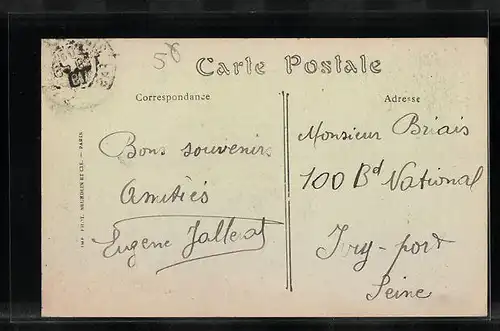 56
Carte Postale
Correspondance
Adresse
Bons souvenirs
Amitiés
Eugene
Monsieur Briais
100 Bd National
Ivry-port
Seine
PARIS